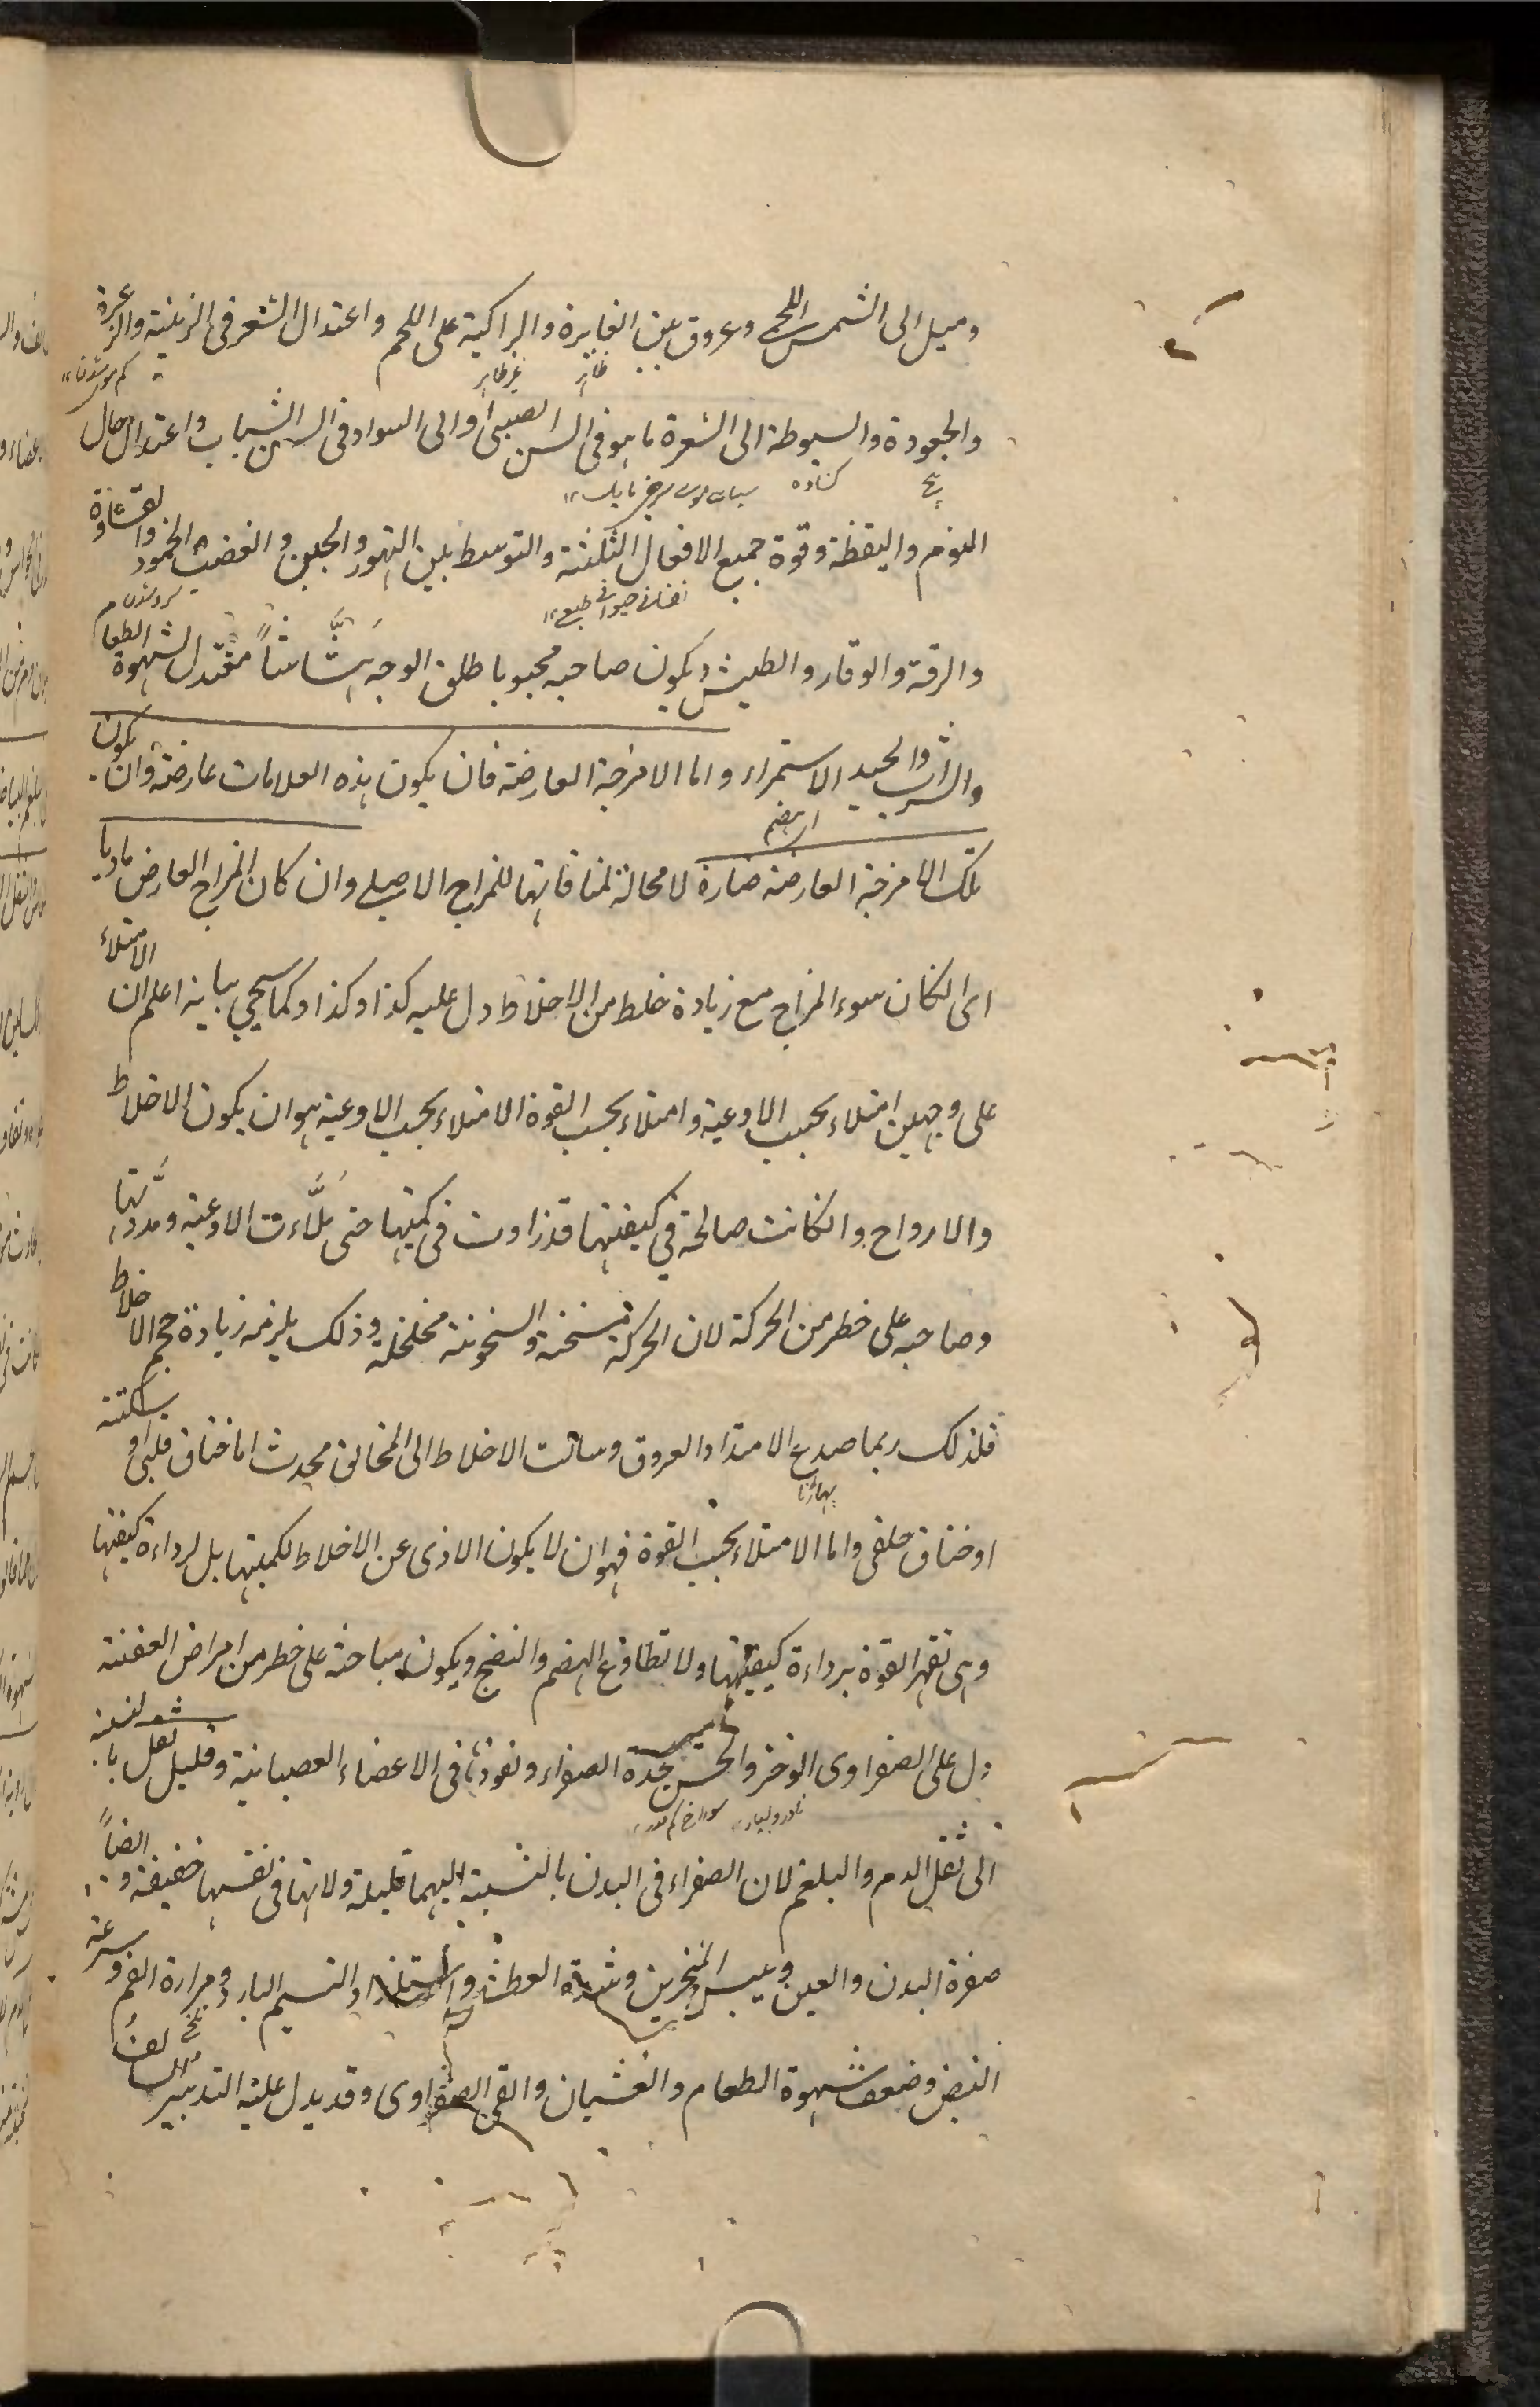 وميل الى الشمس اللحمى وعروق بين الغايرة والراكبة على اللحم واعتدال الشعر فى الزغبية والزعرة
ظاہر
غير ظاہر
والجعودة والسبوطة الى الشعرة ما ہو فى السن الصبى او الى السواد فى السن الشباب واعتدال حال
كشاده
النوم واليقظة وقوة جميع الافعال الثلثة والتوسط بين التهور والجبن والغضب والخمود والقساوة
نفسانى حيوانى طبيعى
والرقة والوقار والطيش ويكون صاحبه محبوبا طلق الوجه ہشّاشاً معتدل الشهوة الطعام
والشراب والجيد الاستمراء واما الامزجة العارضة فان يكون ہذه العلامات عارضة وان يكون
اى ہضم
تلك الامزجة العارضة ضارة لا محالة لمنافاتها للمزاج الاصلى وان كان المزاج العارض ماديا
اى الكان سوء المزاج مع زيادة خلط من الاخلاط دل عليه كذا وكذا وكما سيجى بيانه اعلم ان الامتلاء
على وجهين امتلاء بحسب الاوعية وامتلاء بحسب القوة الامتلاء بحسب الاوعية ہو ان يكون الاخلاط
والارواح والكانت صالحة فى كيفيتها قد زادت فى كميتها حتى ملّاءت الاوعية ومدّدتها
وصاحبه على خطر من الحركة لان الحركة مسخنة والسخونة مخلخلة وذلك يلزمه زيادة حجم الاخلاط
فلذلك ربما صدع الامتداد العروق وسالت الاخلاط الى المخانق محدث اما خناق قلبى او سكتة
او خناق حلقى واما الامتلاء بحسب القوة فهو ان لا يكون الاذى عن الاخلاط لكميتها بل لرداءة كيفيتها
وہى تقهر القوة برداءة كيفيتها ولا تطاوع الہضم والنضج ويكون صاحبه على خطر من امراض العفنة
دل على الصفراوى الوخز والنخس بحدة الصفراء ونفوذہا فى الاعضاء العصبانية وقليل ثقل بالنسبة
الى ثقل الدم والبلغم لان الصفراء فى البدن بالنسبة اليهما قليلة ولانها فى نفسها خفيفة وايضاً
صفرة البدن والعين ويبس المنخرين وشدة العطش واستلذاذ النسيم البارد ومرارة الفم وسرعة
النبض وضعف شهوة الطعام والغشيان والقى الصفراوى وقد يدل عليه التدبير السالف